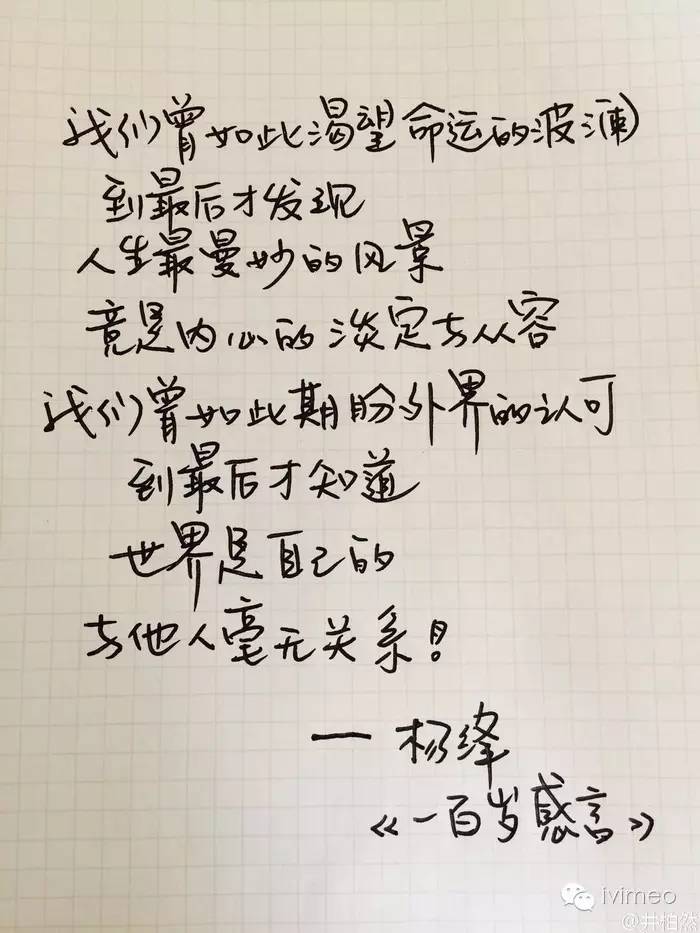 我们曾如此渴望命运的波澜
到最后才发现
人生最曼妙的风景
竟是内心的淡定与从容
我们曾如此期盼外界的认可
到最后才知道
世界是自己的
与他人毫无关系!
— 杨绛
《一百岁感言》
ivimeo
@井柏然